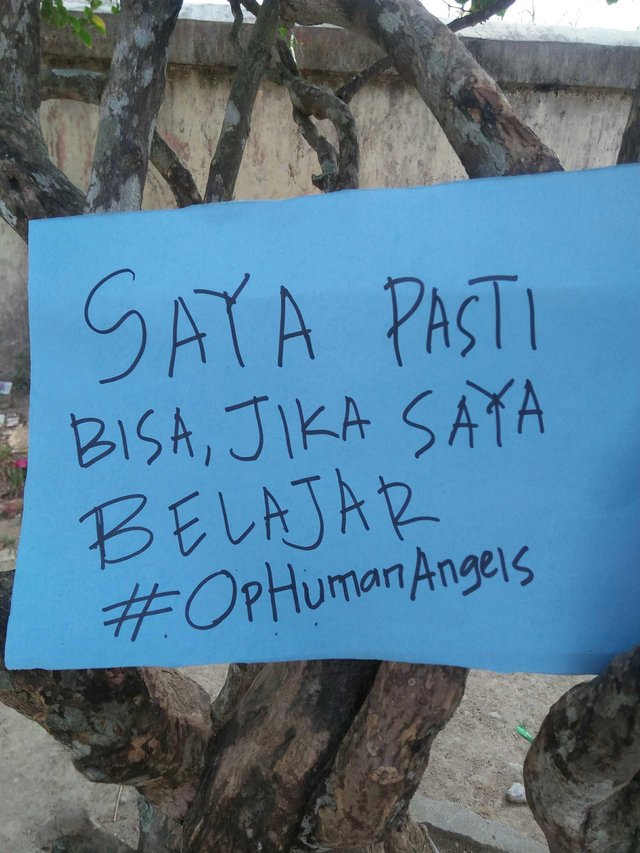 SAYA PASTI
BISA, JIKA SAYA
BELAJAR
#OpHumanAngels